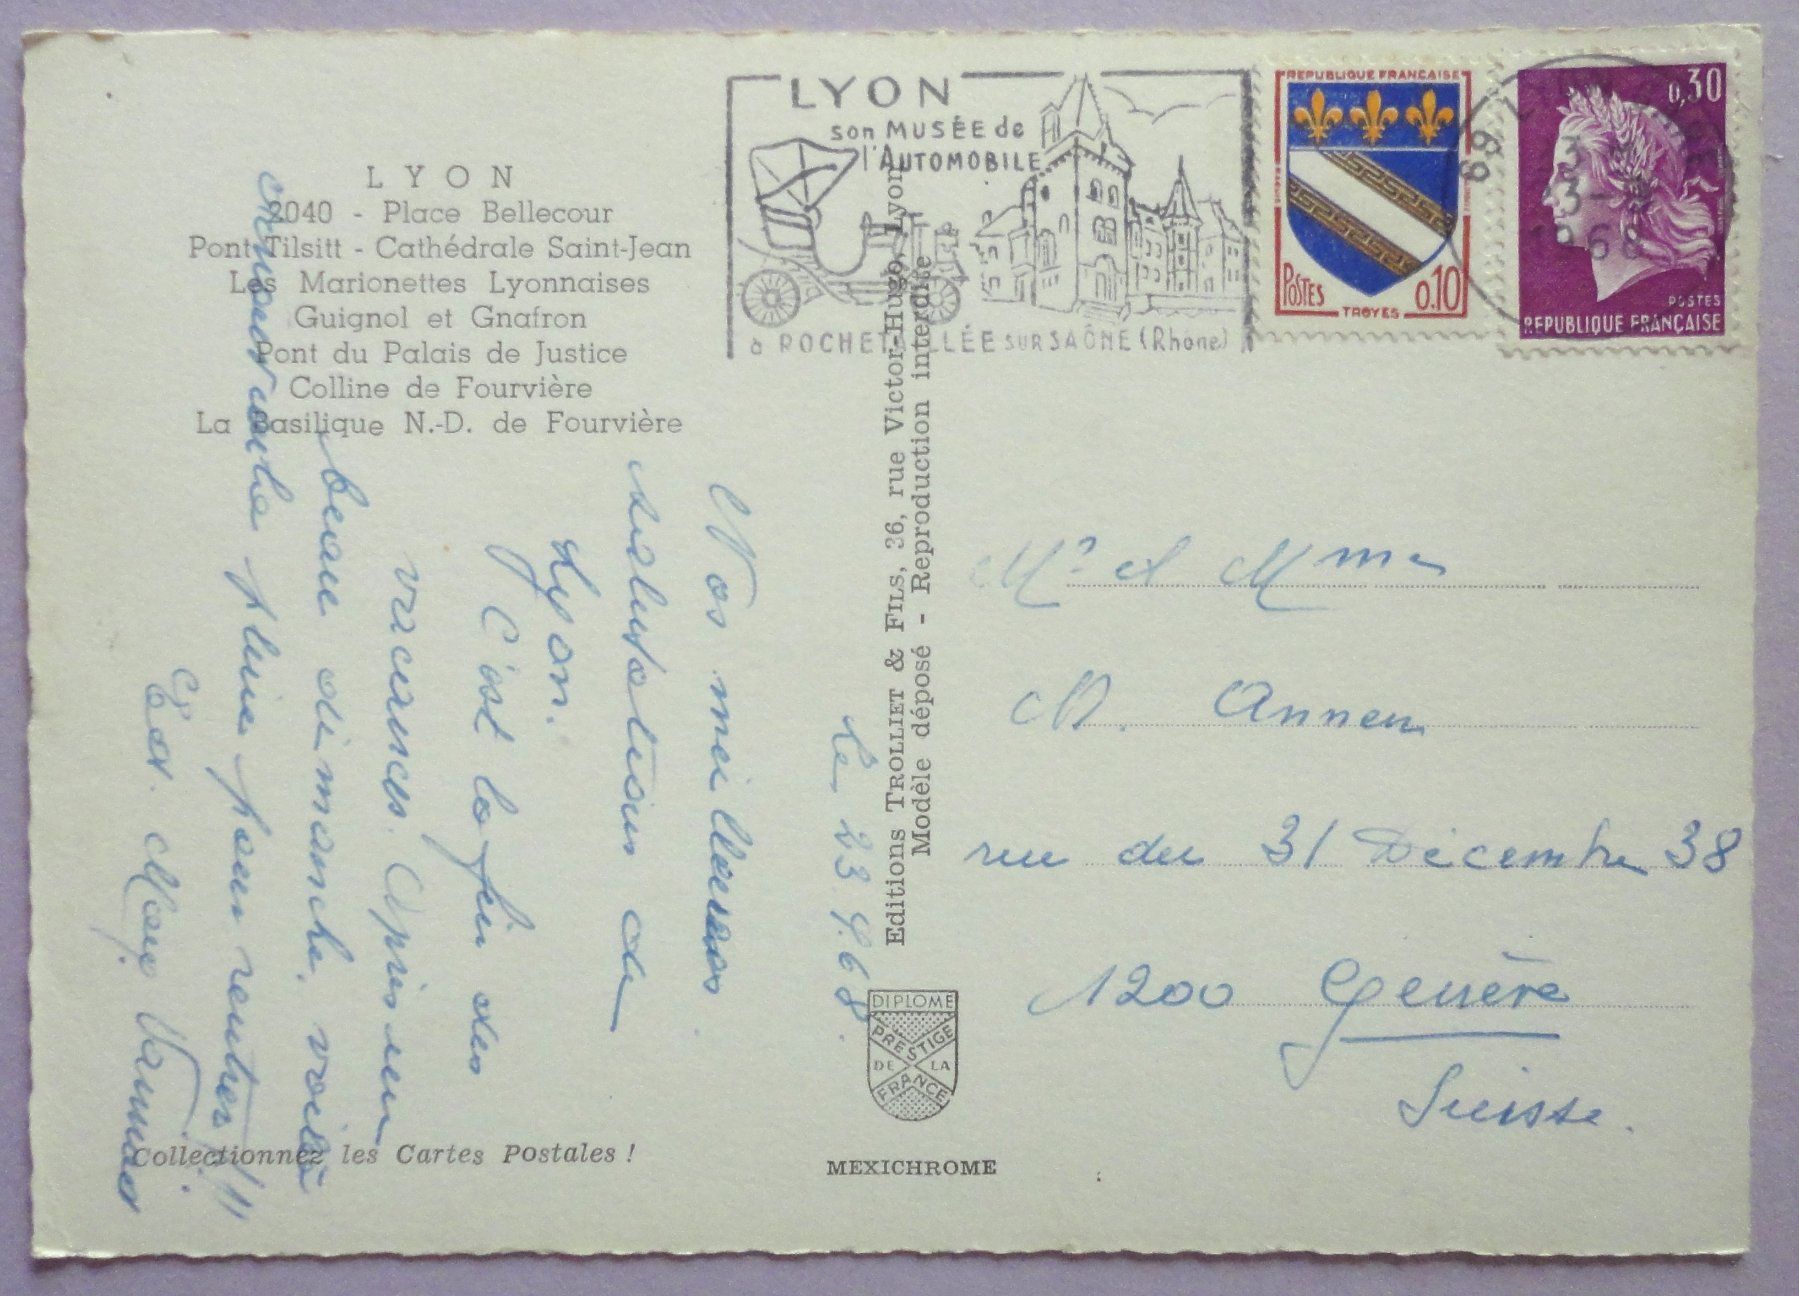 LYON
2040 - Place Bellecour
Pont Tilsitt - Cathédrale Saint-Jean
Les Marionettes Lyonnaises
Guignol et Gnafron
Pont du Palais de Justice
Colline de Fourvière
La Basilique N.-D. de Fourvière
LYON
son MUSÉE de
l'AUTOMOBILE
à ROCHETAILLÉE SUR SAÔNE (Rhône)
REPUBLIQUE FRANÇAISE
POSTES
0,10
TROYES
0,30
POSTES
REPUBLIQUE FRANÇAISE
69 LYON
1968
Editions TROLLIET & FILS, 36, rue Victor-Hugo, Lyon
Modèle déposé - Reproduction interdite
le 23.9.68.
Nos meilleures
salutations de
Lyon.
C'est la fin des
vacances. Après un
beau dimanche, voilà
la pluie pour rentrer!!
Vannier
Mr et Mme
M. Annen
rue du 31 Décembre 38
1200 Genève
Suisse.
DIPLOME
PRESTIGE
DE LA
FRANCE
Collectionnez les Cartes Postales !
MEXICHROME